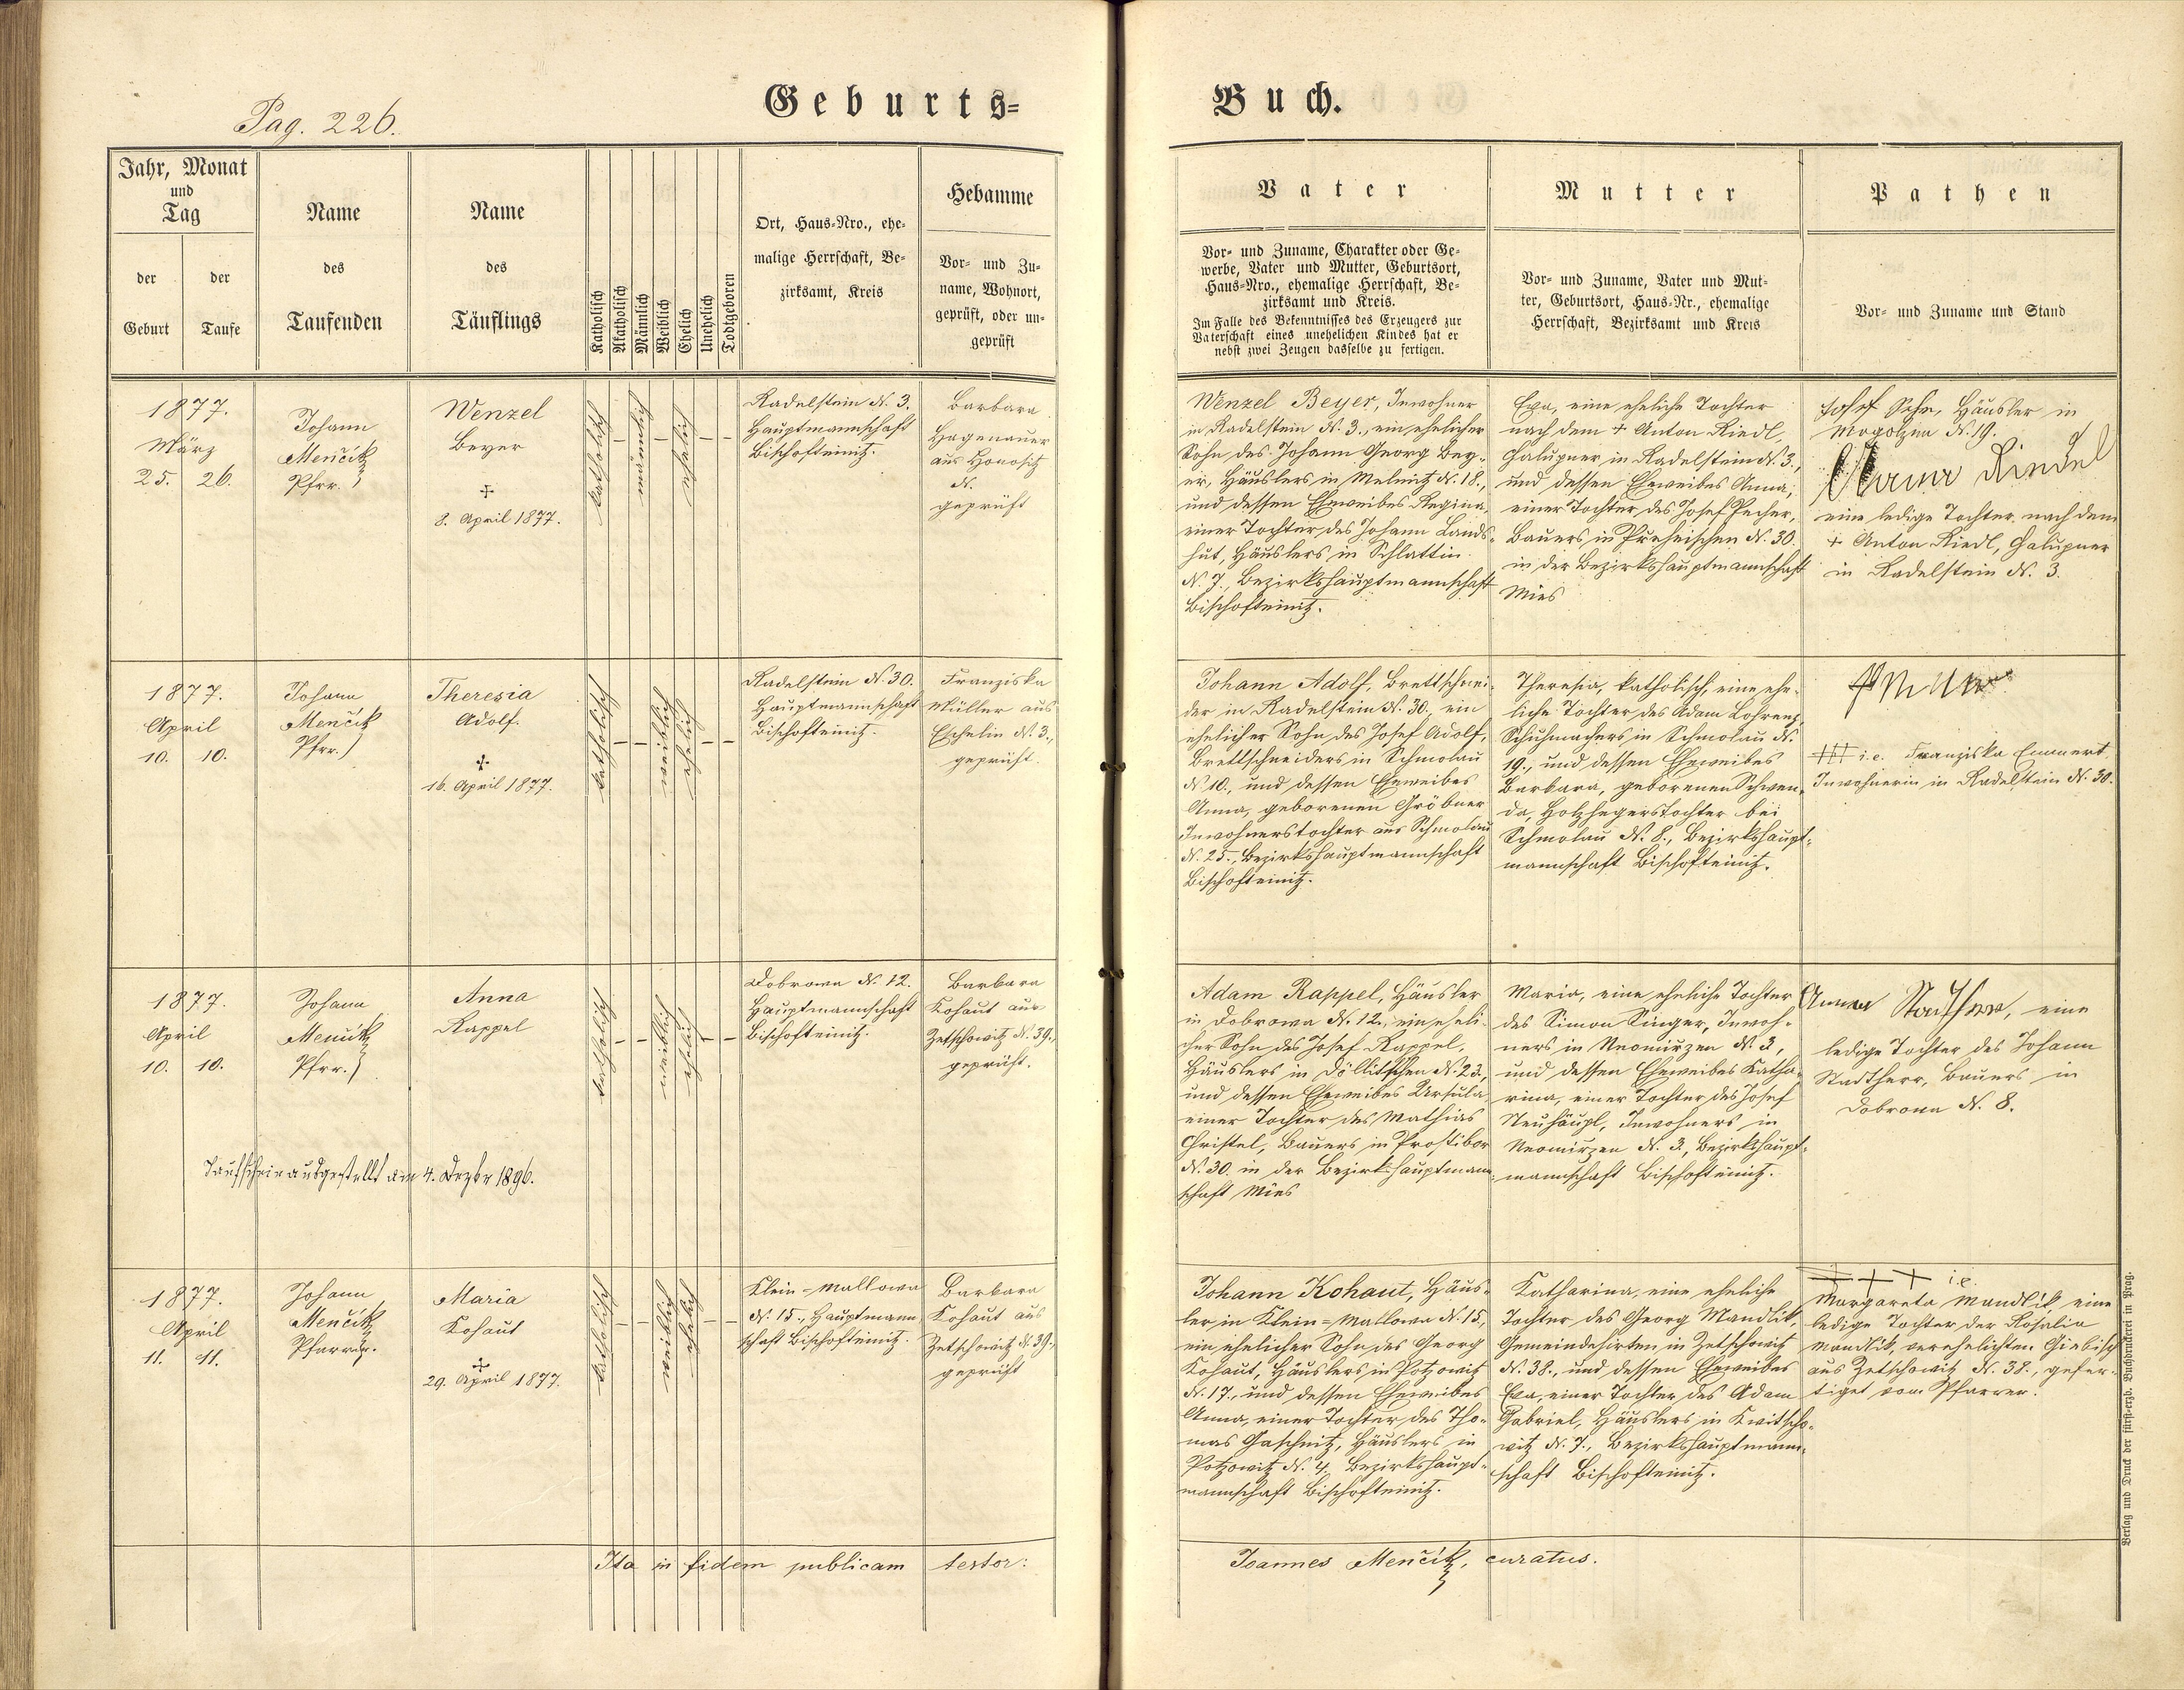 Pag. 226.
Geburts=
Buch.
Jahr, Monat
und
Tag
der
Geburt
der
Taufe
Name
des
Taufenden
Name
des
Täuflings
Katholisch
Akatholisch
Männlich
Weiblich
Ehelich
Unehelich
Todtgeboren
Ort, Haus=Nro., ehe=
malige Herrschaft, Be=
zirksamt, Kreis
Hebamme
Vor= und Zu=
name, Wohnort,
geprüft, oder un=
geprüft
Vater
Vor= und Zuname, Charakter oder Ge=
werbe, Vater und Mutter, Geburtsort,
Haus=Nro., ehemalige Herrschaft, Be=
zirksamt und Kreis.
Im Falle des Bekenntnisses des Erzeugers zur
Vaterschaft eines unehelichen Kindes hat er
nebst zwei Zeugen dasselbe zu fertigen.
Mutter
Vor= und Zuname, Vater und Mut=
ter, Geburtsort, Haus=Nr., ehemalige
Herrschaft, Bezirksamt und Kreis
Pathen
Vor= und Zuname und Stand
1877.
März
25. 26.
Johann
Menčik
Pfrr.
Wenzel
Beyer
+
8. April 1877.
katholisch
–
männlich
–
ehelich
– –
Radelstein N. 3.
Hauptmannschaft
Bischofteinitz.
Barbara
Hagenauer
aus Honositz
N.
geprüft
Wenzel Beyer, Inwohner
in Radelstein N. 3., ein ehelicher
Sohn des Johann Georg Bey=
er, Häuslers in Melmitz N. 18.,
und dessen Eheweibes Regina,
einer Tochter des Johann Lands=
hut, Häuslers in Schlattin
N. 7., Bezirkshauptmannschaft
Bischofteinitz.
Eva, eine eheliche Tochter
nach dem + Anton Riedl,
Chalupner in Radelstein N. 3.,
und dessen Eheweibes Anna,
einer Tochter des Josef Pecher,
Bauers in Preheischen N. 30.
in der Bezirkshauptmannschaft
Mies
Josef Sehr, Häusler in
Mogolzen N. 19.
Riedel
eine ledige Tochter nach dem
+ Anton Riedl, Chalupner
in Radelstein N. 3.
1877.
April
10. 10.
Johann
Menčik
Pfrr.
Theresia
Adolf.
+
16. April 1877.
katholisch
– –
weiblich
ehelich
– –
Radelstein N. 30.
Hauptmannschaft
Bischofteinitz.
Franziska
Müller aus
Eschelin N. 3.,
geprüft.
Johann Adolf, Brettschnei=
der in Radelstein N. 30., ein
ehelicher Sohn des Josef Adolf,
Brettschneiders in Schmolau
N. 10., und dessen Eheweibes
Anna, geborenen Gröbner
Inwohnerstochter aus Schmolau
N. 25., Bezirkshauptmannschaft
Bischofteinitz.
Theresia, katholisch, eine ehe=
liche Tochter des Adam Lohrenz,
Schuhmachers in Schmolau N.
19., und dessen Eheweibes
Barbara, geborenen Schwen=
da, Holzhegerstochter bei
Schmolau N. 8., Bezirkshaupt=
mannschaft Bischofteinitz.
+++ i.e. Franziska Emmert
Inwohnerin in Radelstein N. 30.
1877.
April
10. 10.
Johann
Menčik
Pfrr.
Anna
Rappel
katholisch
– –
weiblich
ehelich
– –
Dobrowa N. 12.
Hauptmannschaft
Bischofteinitz.
Barbara
Kohaut aus
Zetschowitz N. 39.,
geprüft.
Taufschein ausgestellt am 4. Dezbr 1896.
Adam Rappel, Häusler
in Dobrowa N. 12., ein eheli=
cher Sohn des Josef Rappel,
Häuslers in Döllitschen N. 23.,
und dessen Eheweibes Ursula,
einer Tochter des Mathias
Christel, Bauers in Prostibor
N. 30. in der Bezirkshauptmann=
schaft Mies
Maria, eine eheliche Tochter
des Simon Singer, Inwoh=
ners in Neomirzen N. 3.,
und dessen Eheweibes Katha=
rina, einer Tochter des Josef
Neuhäupl, Inwohners in
Neomirzen N. 3., Bezirkshaupt=
mannschaft Bischofteinitz.
Anna Stadtherr, eine
ledige Tochter des Johann
Stadtherr, Bauers in
Dobrowa N. 8.
1877.
April
11. 11.
Johann
Menčik
Pfarrer.
Maria
Kohaut
+
29. April 1877.
katholisch
– –
weiblich
ehelich
– –
Klein=Mallowa
N. 15., Hauptmann=
schaft Bischofteinitz.
Barbara
Kohaut aus
Zetschowitz N. 39.,
geprüft
Johann Kohaut, Häus=
ler in Klein=Mallowa N. 15.,
ein ehelicher Sohn des Georg
Kohaut, Häuslers in Potzowitz
N. 17., und dessen Eheweibes
Anna, einer Tochter des Tho=
mas Gaschnitz, Häuslers in
Potzowitz N. 4., Bezirkshaupt=
mannschaft Bischofteinitz.
Katharina, eine eheliche
Tochter des Georg Mandlik,
Gemeindehirten in Zetschowitz
N. 38., und dessen Eheweibes
Eva, einer Tochter des Adam
Gabriel, Häuslers in Kwitscho=
witz N. 7., Bezirkshauptmann=
schaft Bischofteinitz.
+++ i.e.
Margareta Mandlik, eine
ledige Tochter der Rosalia
Mandlik, verehelichten Giebisch
aus Zetschowitz N. 38., gefer=
tiget vom Pfarrer.
Ita in fidem publicam testor:
Joannes Menčik, curatus.
Verlag und Druck der fürst=erzb. Buchdruckerei in Prag.